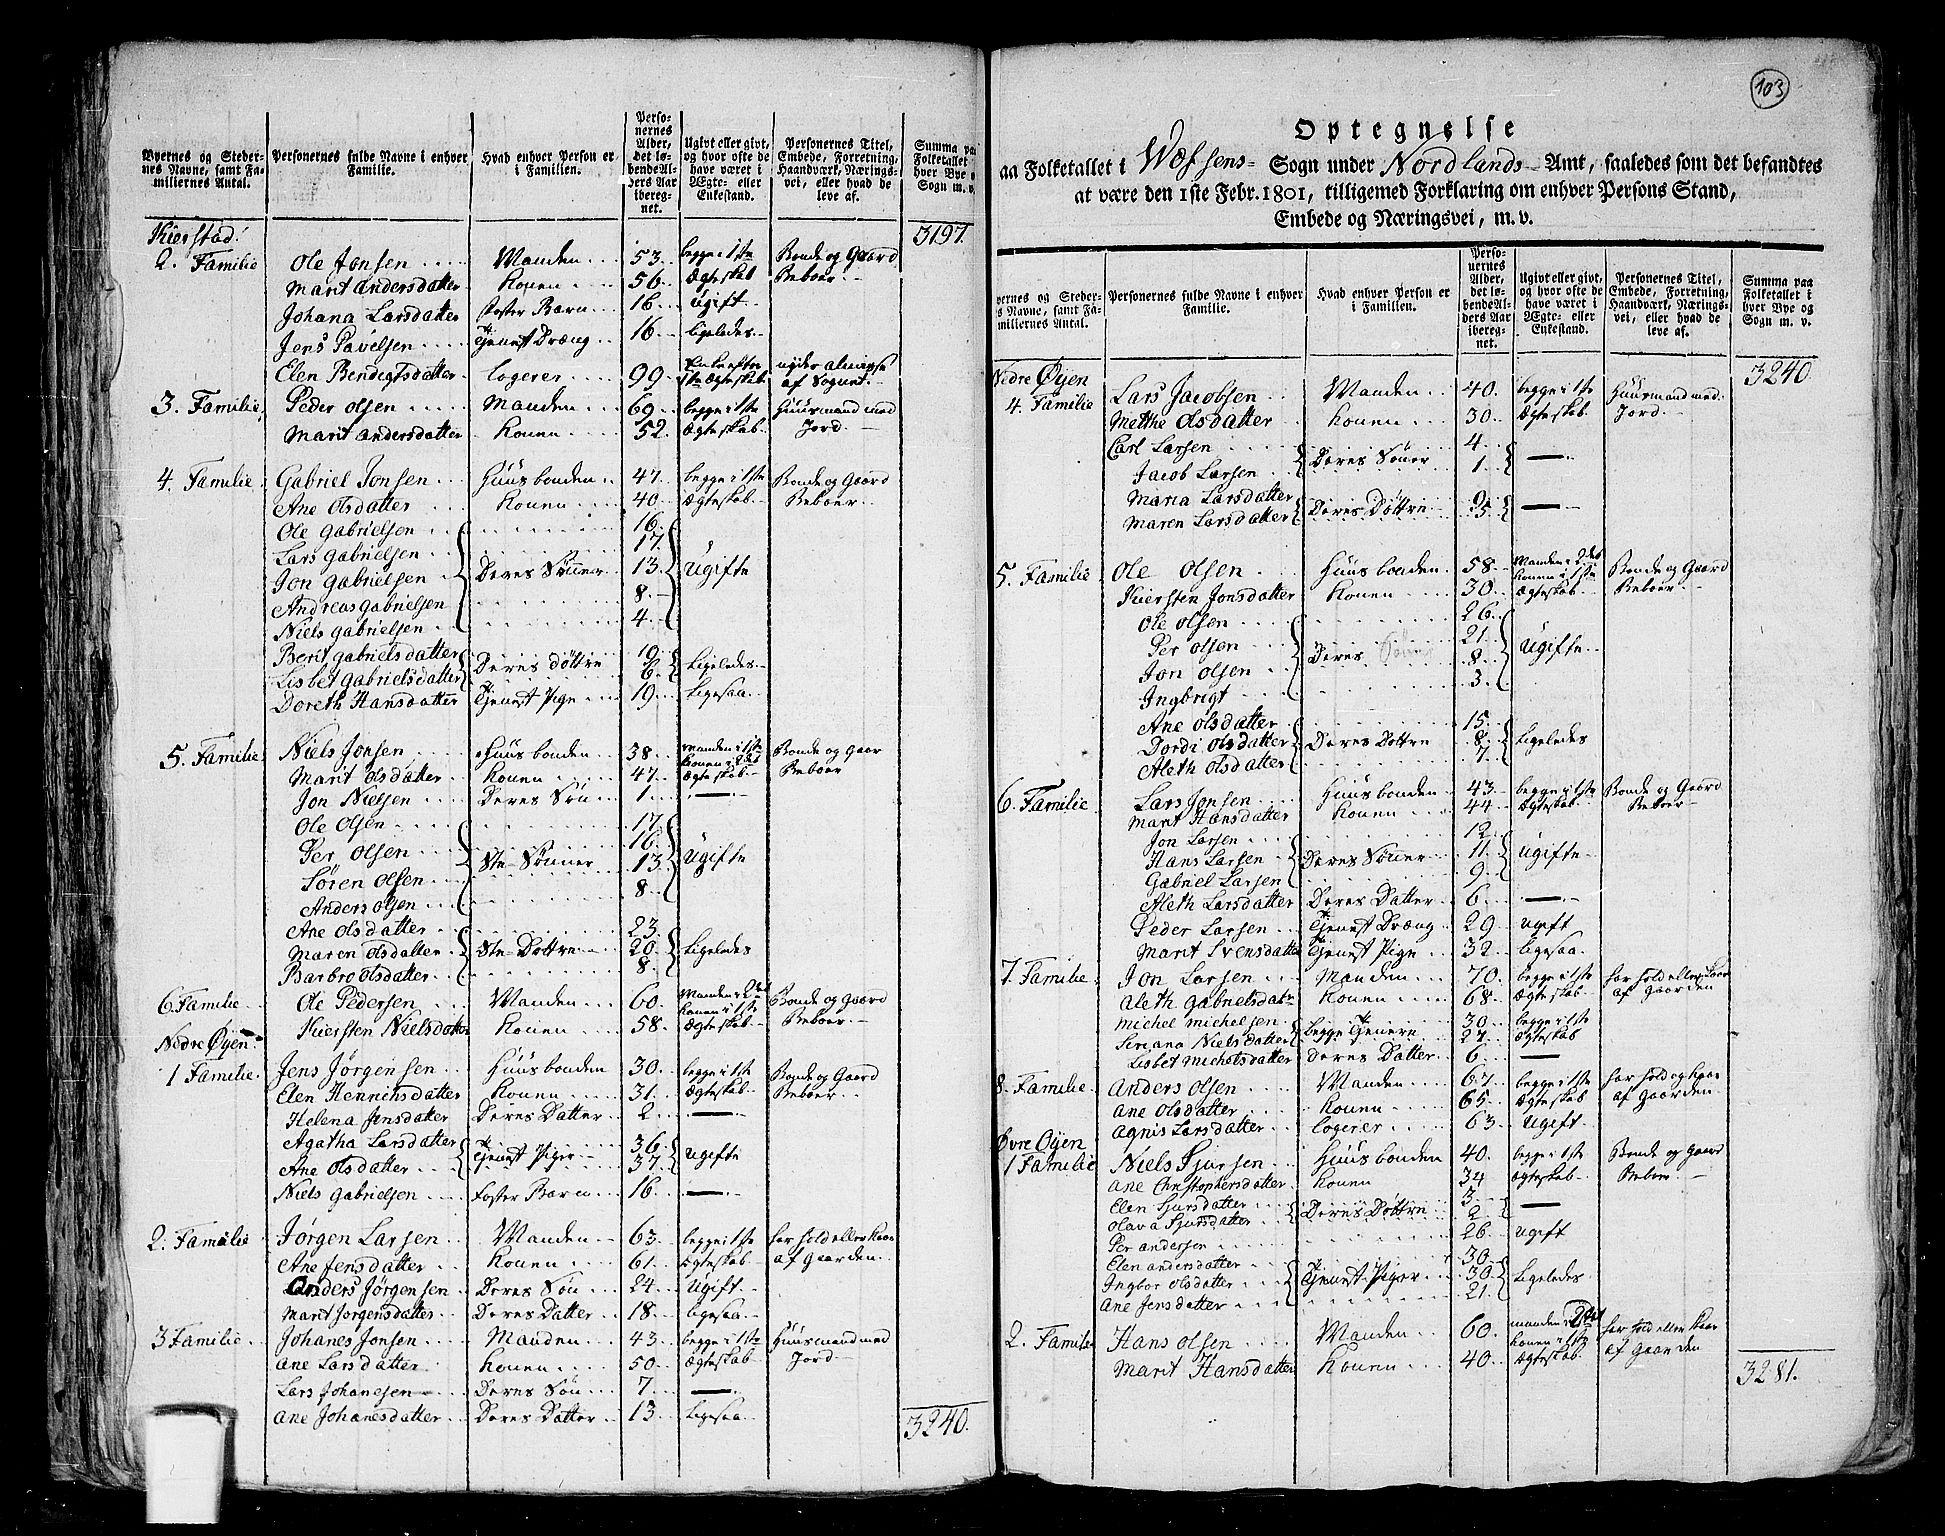 103
Byernes og Stedernes Navne, samt Familiernes Antal. | Personernes fulde Navne i enhver Familie. | Hvad enhver Person er i Familien. | Personernes Alder, det løbende Alders Aar iberegnet. | Ugivt eller givt, og hvor ofte de have været i Ægte- eller Enkestand. | Personernes Titel, Embede, Forretning, Haandværk, Næringsvei, eller hvad de leve af. | Summa paa Folketallet i hver Bye og Sogn m. v.
Kierstad. 3197.
2. Familie Ole Jonsen Manden 53. begge i 1ste Bonde og Gaard
Marit Andersdatter Konen 56. Ægteskab Beboer
Johana Larsdatter Foster Barn 16. ugift
Jens Pavelsen Tienest Dræng 16. ligeledes
Elen Bendigtsdatter logerer 99. Enke efter 1ste Ægteskab nyder almisse af Sognet.
3. Familie Peder Olsen Manden 69. begge i 1ste Huusmand med
Marit Andersdatter Konen 52. Ægteskab Jord
4. Familie Gabriel Jonsen Huusbonden 47. begge i 1ste Bonde og Gaard
Ane Olsdatter Konen 40. Ægteskab Beboer
Ole Gabrielsen 16.
Lars Gabrielsen 17.
Jon Gabrielsen Deres Sønner 13. Ugifte
Andreas Gabrielsen 8.
Niels Gabrielsen 4.
Berit Gabrielsdatter 10.
Lisbet Gabrielsdatter Deres døttre 6. Ligeledes
Doreth Hansdatter Tjenest Pige 19. Ligesaa
5. Familie Niels Jonsen Huusbonden 38. Manden i 1ste Bonde og Gaar
Marit Olsdatter Konen 47. Konen i 2det Ægteskab Beboer
Jon Nielsen Deres Søn 1.
Ole Olsen 17.
Per Olsen 16.
Søren Olsen Ste-Sønner 13. Ugifte
Anders Olsen 8.
Ane Olsdatter 23.
Maren Olsdatter Ste-Døttre 20. Ligeledes
Barbro Olsdatter 8.
6 Familie Ole Pedersen Manden 60. Manden i 2det Bonde og Gaard
Kiersten Nielsdatter Konen 58. Konen i 1ste Ægteskab Beboer
Nedre Øyen
1 Familie Jens Jørgensen Huusbonden 30. begge i 1ste Bonde og Gaard
Elen Henrichsdatter Konen 31. Ægteskab Beboer
Helena Jensdatter Deres Datter 2
Agatha Larsdatter 36.
Ane Olsdatter Tjenest Piger 37. Ugifte
Niels Gabrielsen Foster Barn 16.
2. Familie Jørgen Larsen Manden 63. begge i 1ste har hold eller Kaar
Ane Jensdatter Konen 61. Ægteskab af Gaarden
Anders Jørgensen Deres Søn 24. Ugift
Marit Jørgensdatter Deres Datter 18. ligesaa
3 Familie Johanes Jonsen Manden 43. begge i 1ste Huusmand med
Ane Larsdatter Konen 50. Ægteskab Jord
Lars Johanesen Deres Søn 7
Ane Johanesdatter Deres Datter 13. Ligesaa
3240.
Optegnelse
aa Folketallet i Wefsens Sogn under Nordlands Amt, saaledes som det befandtes
at være den 1ste Febr. 1801, tilligemed Forklaring om enhver Persons Stand,
Embede og Næringsvei, m. v.
yernes og Steder- s Navne, samt Fa- miliernes Antal. | Personernes fulde Navne i enhver Familie. | Hvad enhver Person er i Familien. | Personernes Alder, det løbende Alders Aar iberegnet. | Ugivt eller givt, og hvor ofte de have været i Ægte- eller Enkestand. | Personernes Titel, Embede, Forretning, Haandværk, Næringsvei, eller hvad de leve af. | Summa paa Folketallet i hver Bye og Sogn m. v.
Nedre Øyen 3240.
4. Familie Lars Jacobsen Manden 40. begge i 1ste Huusmand med
Metthe Olsdatter Konen 30. Ægteskab Jord
Carl Larsen 4
Jacob Larsen Deres Sønner 1
Maria Larsdatter 9.
Maren Larsdatter Deres Døttre 5.
5. Familie Ole Olsen Huusbonden 58. Manden i 2det Bonde og Gaard
Kiersten Jonsdatter Konen 30. Konen i 1ste Ægteskab Beboer
Ole Olsen 26.
Per Olsen 21.
Jon Olsen Deres Sønner 8. Ugifte
Ingbrigt 3.
Ane Olsdatter 15.
Dordi Olsdatter Deres Døttre 8. Ligeledes
Aleth Olsdatter 7
6. Familie Lars Jonsen Huusbonden 43. begge i 1ste Bonde og Gaard
Marit Hansdatter Konen 44. Ægteskab Beboer
Jon Larsen 12.
Hans Larsen Deres Sønner 11. Ugifte
Gabriel Larsen 9.
Aleth Larsdatter Deres Datter 6.
Peder Larsen Tjenest Dræng 29. ugift
Marit Svensdatter Tjenest Pige 32. ligesaa
7. Familie Jon Larsen Manden 70. begge i 1ste har hold eller Kaar
Aleth Gabrielsdatr Konen 68. Ægteskab af Gaarden
Michel Michelsen 30. begge i 1ste
Seriana Nielsdatter begge Tjenere 27. Ægteskab
Lisbet Michelsdatter Deres Datter 6.
8. Familie Anders Olsen Manden 67. begge i 1ste har hold og Kaar
Ane Olsdatter Konen 65. Ægteskab af Gaarden
Agnis Larsdatter logerer 63. Ugift.
Øvre Øyen
1 Familie Niels Sjursen Huusbonden 40. begge i 1ste Bonde og Gaard
Ane Christophersdatter Konen 34 Ægteskab Beboer
Elen Sjursdatter 3
Olava Sjursdatter Deres Døttre 2.
Per Andersen 26. ugift
Elen Andersdatter 30.
Ingbor Olsdatter Tjenest Piger 30. Ligeledes
Ane Jensdatter 21.
2. Familie Hans Olsen Manden 60. Manden i 2det har hold eller Kaar
Marit Hansdatter Konen 40. Konen i 1ste Ægteskab af Gaarden
3281.